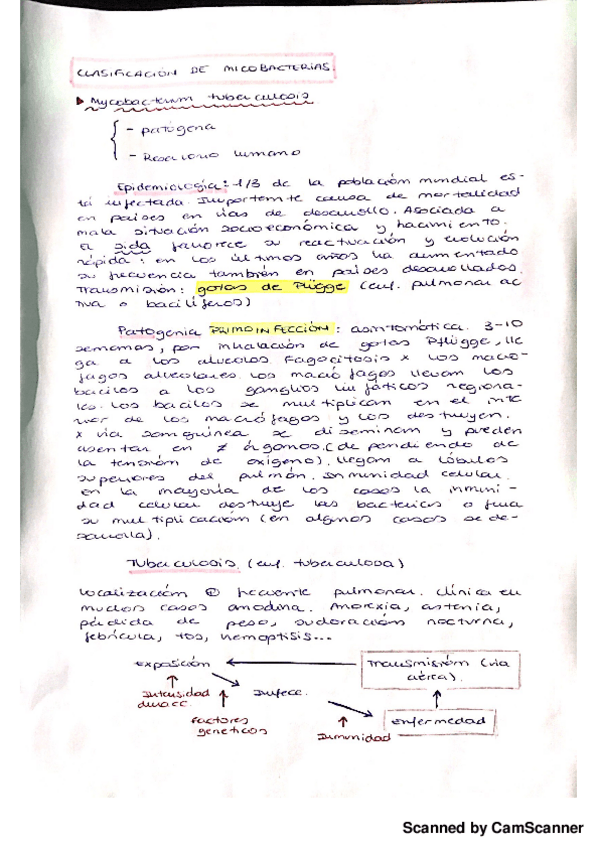 CLASIFICACIÓN DE MICOBACTERIAS.
Mycobacterium tuberculosis
- patógena
- Reservorio humano
Epidemiología: 1/3 de la población mundial es-
tá infectada. Importante causa de mortalidad
en países en vías de desarrollo. Asociada a
mala situación socioeconómica y hacinamiento.
El sida favorece su reactivación y evolución
rápida: en los últimos años ha aumentado
su frecuencia también en países desarrollados.
Transmisión: gotas de Flügge (enf. pulmonar ac
tiva o bacilíferos)
Patogenia PRIMOINFECCIÓN: asintomática. 3-10
semanas, por inhalación de gotas Pflügge, lle
ga a los alveolos fagocitosis x los macró-
fagos alveolares. los macrófagos llevan los
bacilos a los ganglios linfáticos regiona-
les. los bacilos se multiplican en el inte
rior de los macrófagos y los destruyen.
x vía sanguínea se diseminan y pueden
asentar en ≠ órganos. (dependiendo de
la tensión de oxígeno). llegan a lóbulos
superiores del pulmón. Inmunidad celular.
en la mayoría de los casos la inmuni-
dad celular destruye las bacterias o frena
su multiplicación (en algunos casos se de-
sarrolla).
Tuberculosis. (enf. tuberculosa)
localización ⊕ frecuente pulmonar. clínica en
muchos casos anodina. Anorexia, astenia,
pérdida de peso, sudoración nocturna,
febrícula, tos, hemoptisis...
exposición ← Transmisión (vía
aérea).
Intensidad Infecc.
durac.
factores
genéticos
Inmunidad
enfermedad
Scanned by CamScanner